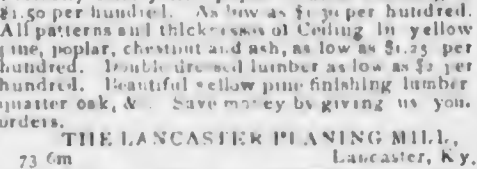 $1.50 per hundred. As low as $1.30 per hundred.
All patterns and thicknesses of Ceiling in yellow
pine, poplar, chestnut and ash, as low as $1.25 per
hundred. Double dressed lumber as low as $2 per
hundred. Beautiful yellow pine finishing lumber
quarter oak, &. Save money by giving us your
orders.
THE LANCASTER PLANING MILL,
73 6m Lancaster, Ky.